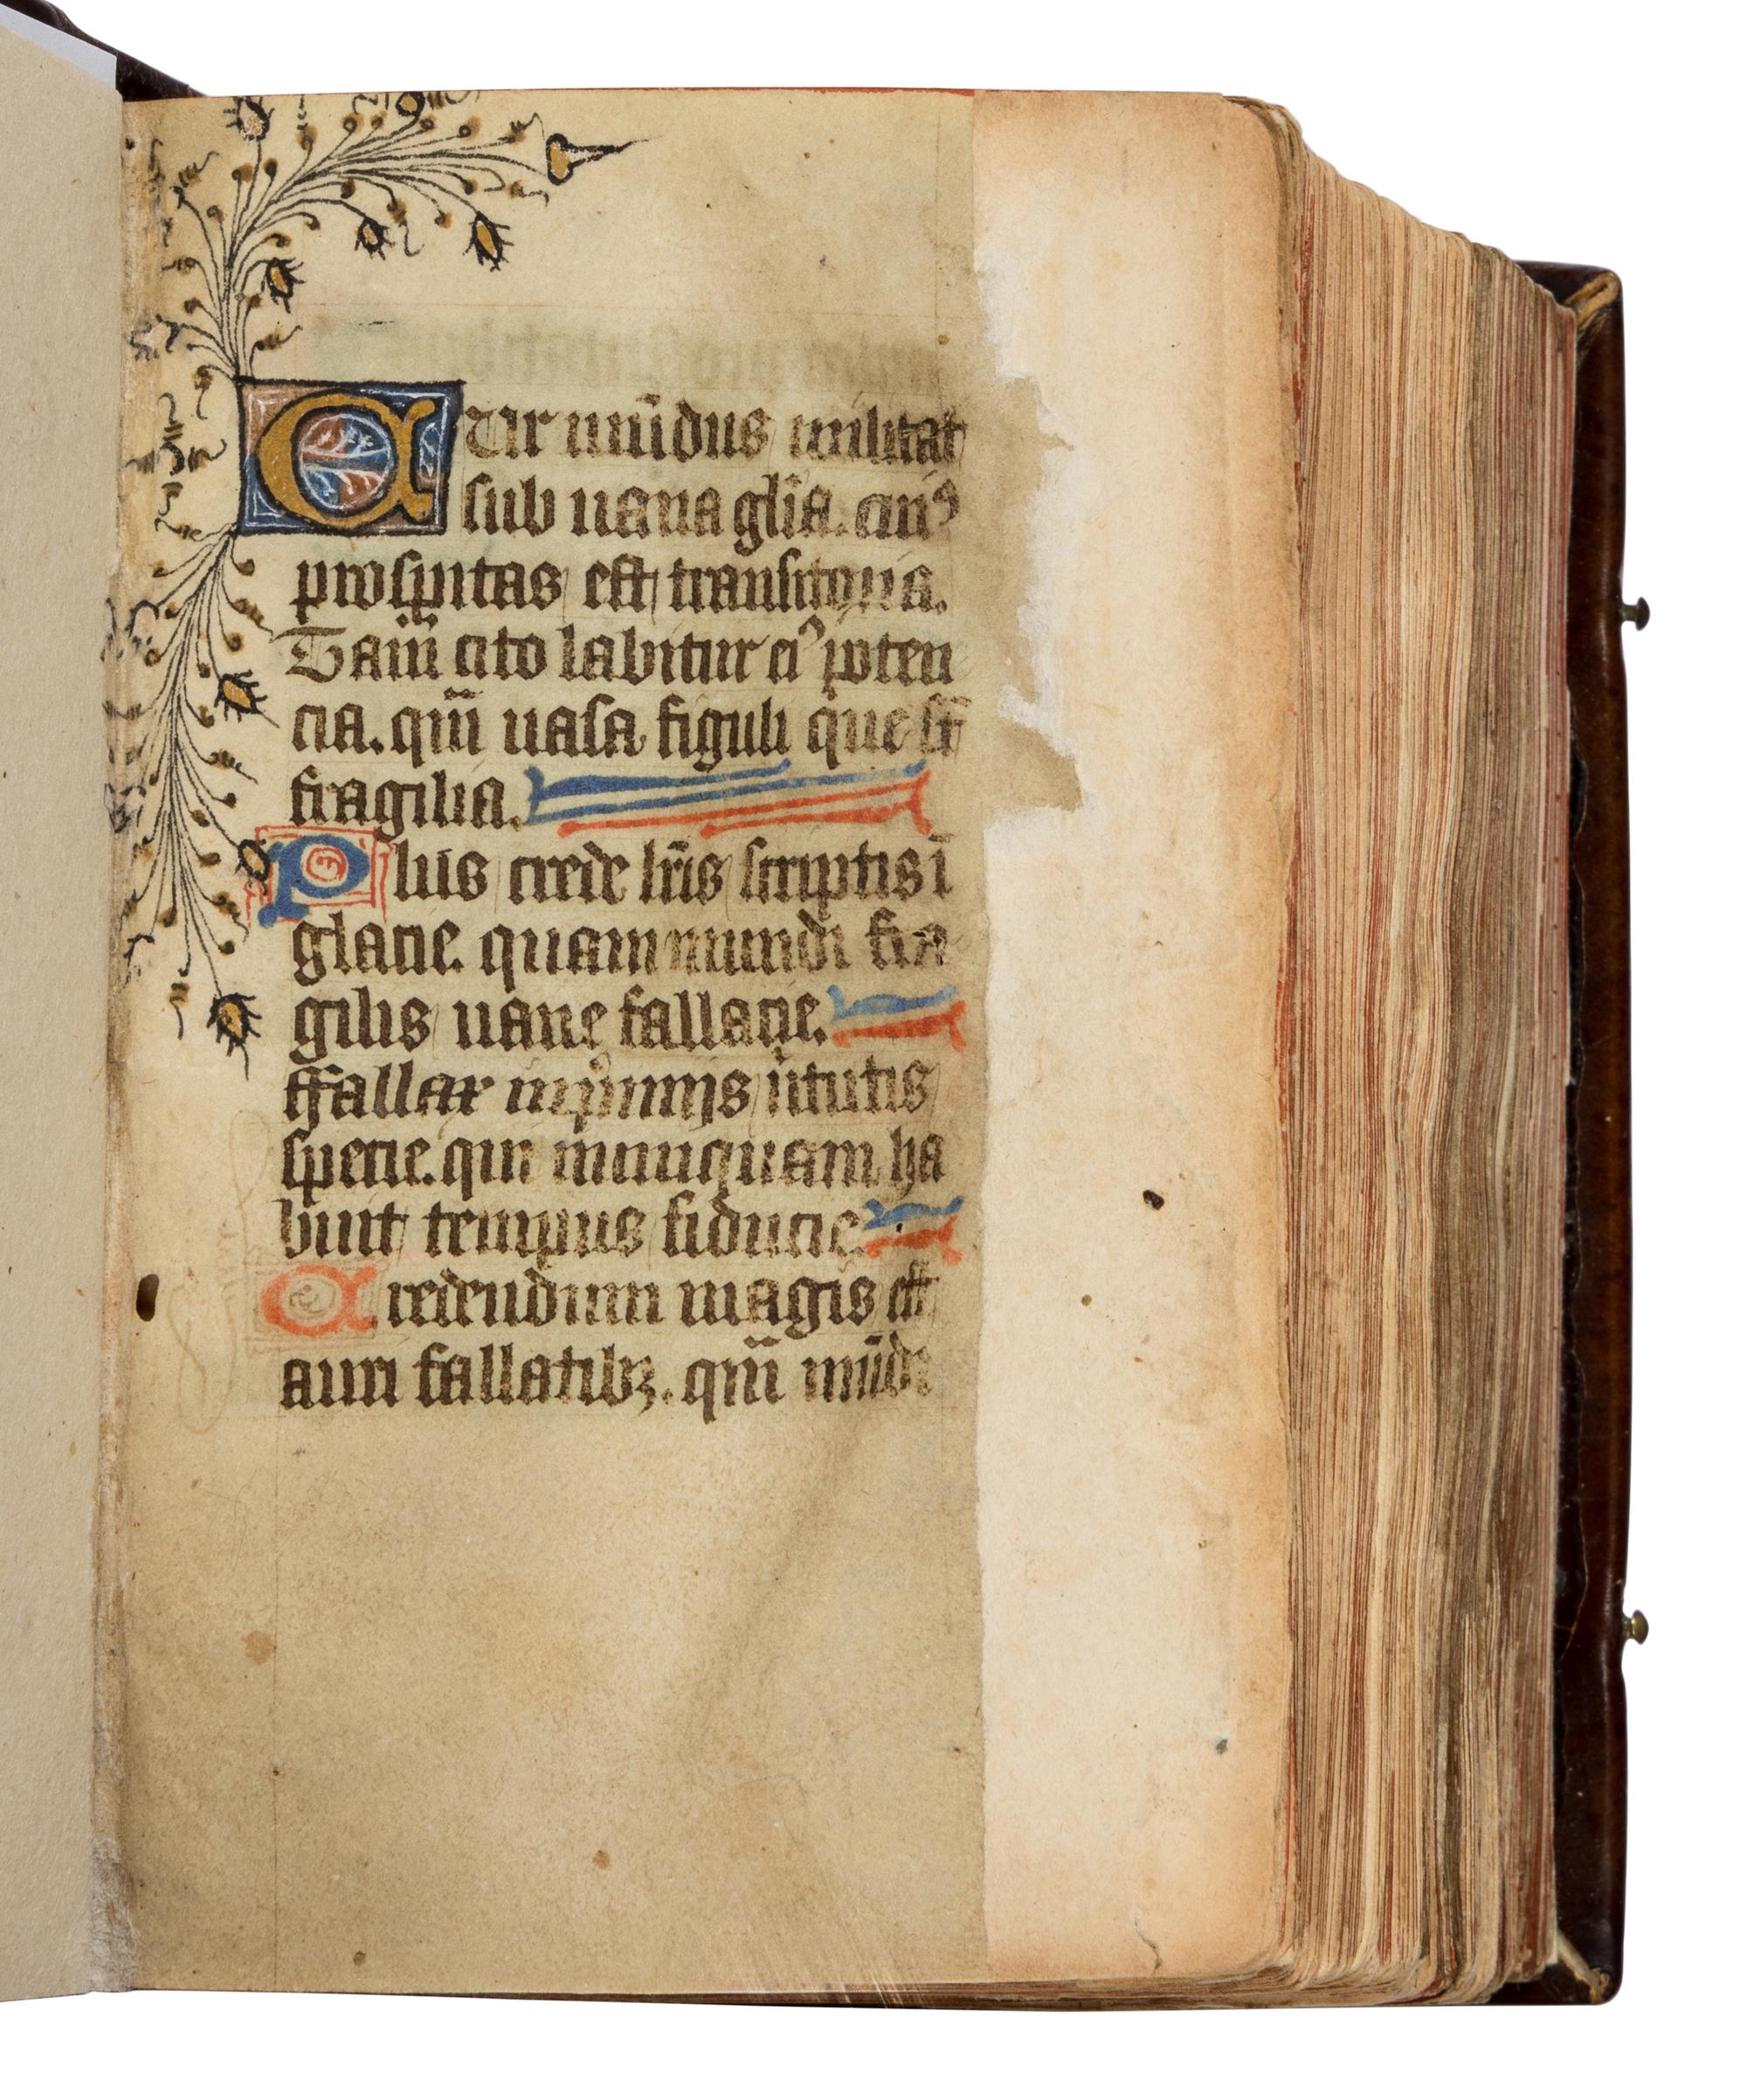 CUr mūdus militat
sub uana gl̄ia. cuiꝰ
prosꝑitas est transitoria.
Tam̄ cito labitur eiꝰ poten
cia. qm̄ uasa figuli que sт̄
fragilia.
Plus crede lr̄is scriptis ī
glacie. quam mundi fra
gilis uane fallacie.
ffallax in p̄mijs u̾tutis
specie. qui nunquam ha
buit tempus fiducie.
Credendum magis est
auri fallacibꝫ. qm̄ mūdi